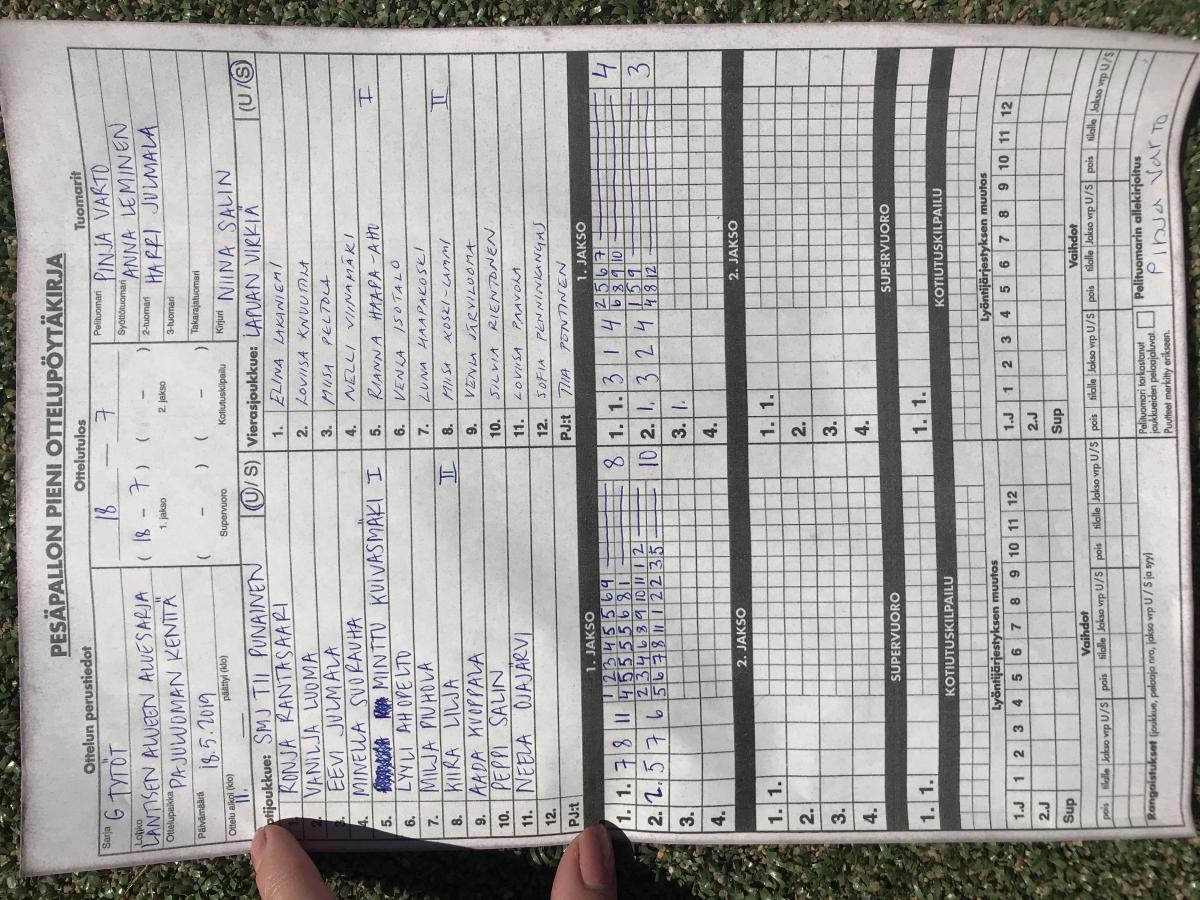 PESÄPALLON PIENI OTTELUPÖYTÄKIRJA
Ottelun perustiedot
Sarja G TYTÖT
Lohko LÄNTISEN ALUEEN ALUESARJA
Ottelupaikka PAJULUOMAN KENTTÄ
Päivämäärä 18.5.2019
Ottelu alkoi (klo) 11. päättyi (klo)
Ottelutulos
18 — 7
( 18 - 7 ) ( - )
1. jakso 2. jakso
( - ) ( - )
Supervuoro Kotiutuskilpailu
Tuomarit
Pelituomari PINJA VARTO
Syöttötuomari ANNA LEMINEN
2-tuomari HARRI JULMALA
3-tuomari
Takarajatuomari
Kirjuri NIINA SALIN
Kotijoukkue: SMJ TII PUNAINEN (U/S)
1. RONJA RANTASAARI
2. VANILJA LUOMA
3. EEVI JULMALA
4. MINELLA SUORAUHA
5. MINTTU KUIVASMÄKI I
6. LYYLI AHOPELTO
7. MILJA PIUHOLA
8. KIIRA LILJA II
9. AADA KUOPPALA
10. PEPPI SALIN
11. NEELA OJAJÄRVI
12.
PJ:t
Vierasjoukkue: LAPUAN VIRKIÄ (U/S)
1. ELINA LAKANIEMI
2. LOVIISA KNUUTILA
3. MIISA PELTOLA
4. NELLI VIINAMÄKI
5. RIANNA HAAPA-AHO I
6. VENLA ISOTALO
7. LUNA HAAPAKOSKI
8. MIISA KOSKI-LAMMI II
9. VENLA JÄRVILUOMA
10. SILVIA RIENTONEN
11. LOVIISA PAAVOLA
12. SOFIA PENNINKANGAS
PJ:t TIIA PENTTINEN
1. JAKSO
1. 1. 7 8 11 1 2 3 4 5 5 6 9 8
4 5 5 5 5 6 8 1
2. 5 7 6 2 3 4 6 8 9 10 11 12 10
5 6 7 8 11 1 2 2 3 5
3.
4.
1. JAKSO
1. 1. 3 1 4 2 5 6 7 4
6 8 9 10
2. 1. 3 2 4 1 5 9 3
4 8 12
3. 1.
4.
2. JAKSO
1. 1.
2.
3.
4.
2. JAKSO
1. 1.
2.
3.
4.
SUPERVUORO
1. 1.
SUPERVUORO
1. 1.
KOTIUTUSKILPAILU
KOTIUTUSKILPAILU
Lyöntijärjestyksen muutos
1.J 1 2 3 4 5 6 7 8 9 10 11 12
2.J
Sup
Lyöntijärjestyksen muutos
1.J 1 2 3 4 5 6 7 8 9 10 11 12
2.J
Sup
Vaihdot
pois tilalle Jakso vrp U/S pois tilalle Jakso vrp U/S pois tilalle Jakso vrp U/S
Vaihdot
pois tilalle Jakso vrp U/S pois tilalle Jakso vrp U/S pois tilalle Jakso vrp U/S
Rangaistukset (joukkue, pelaaja nro, jakso vrp U/S ja syy)
Pelituomari tarkastanut
joukkueiden pelaajaluvat.
Puutteet merkitty erikseen.
Pelituomarin allekirjoitus
Pinja Varto